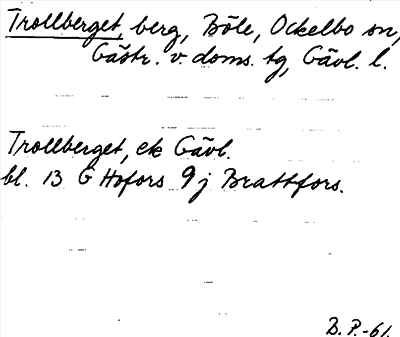 Trollberget, berg, Böle, Ockelbo sn,
Gästr. v. doms. tg, Gävl. l.
Trollberget, ek Gävl.
bl. 13 G Hofors 9 j Brattfors.
B. P.-61.